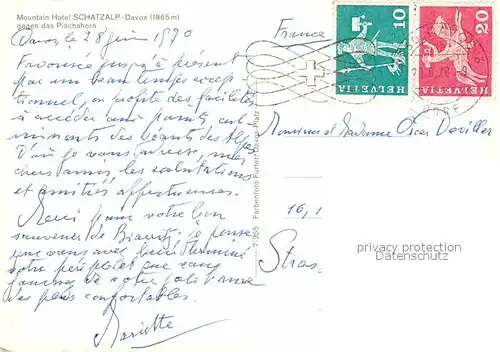 Mountain Hotel SCHATZALP - Davos (1865 m)
gegen das Pischahorn
Davos, le 28 juin 1970
Favorisée jusqu'à présent
par un beau temps excep
tionnel, on profite des facilités
à accéder aux points cul-
minants des géants des Alpes
D'où je vous adresse, mes
chers amis, les salutations
et amitiés affectueuses.
Merci pour votre bon
souvenir de Biarritz, je pense
que vous avez bien terminé
votre périple et que vous
de votre
des plus confortables.
Mariette
7.255 Farbenfoto Furter, Davos-Platz
France
HELVETIA 10
HELVETIA 20
Monsieur et Madame Oscar
16,
Stras
privacy protection
Datenschutz